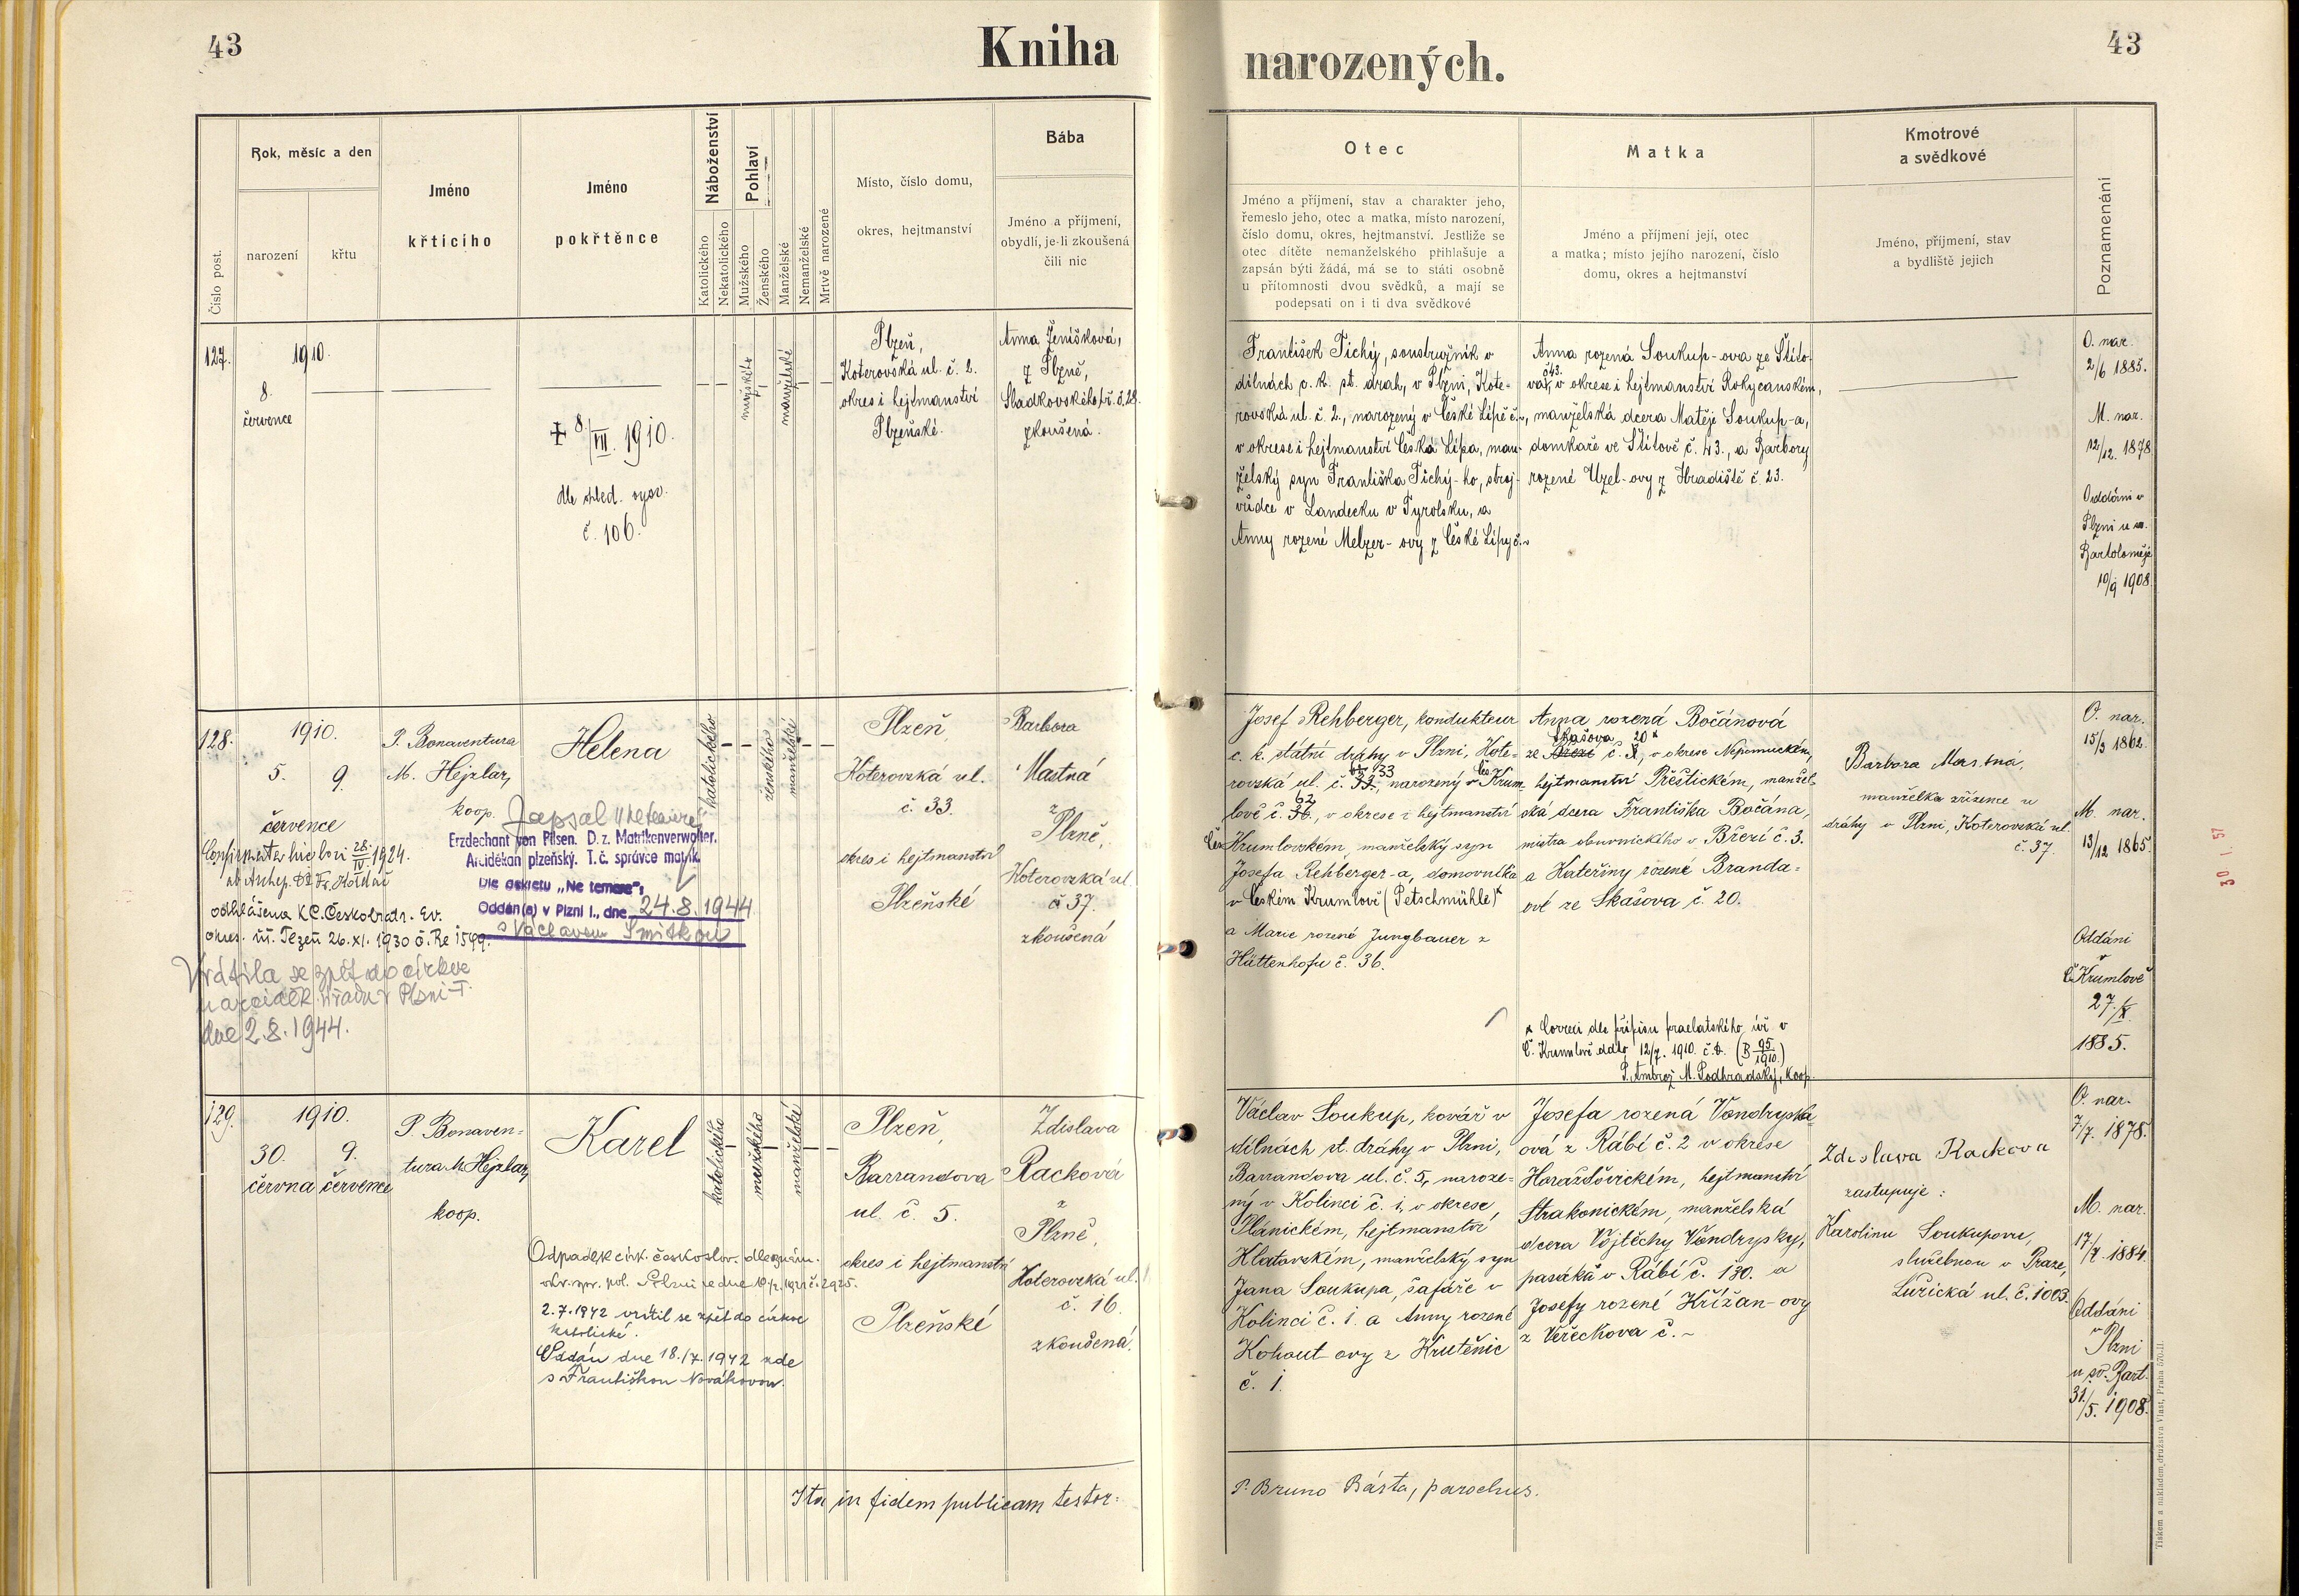 43
Kniha
narozených.
43
Číslo post.
Rok, měsíc a den
narození
křtu
Jméno
křtícího
Jméno
pokřtěnce
Náboženství
Katolického
Nekatolického
Pohlaví
Mužského
Ženského
Manželské
Nemanželské
Mrtvě narozené
Místo, číslo domu,
okres, hejtmanství
Bába
Jméno a příjmení,
obydlí, je-li zkoušená
čili nic
Otec
Jméno a příjmení, stav a charakter jeho,
řemeslo jeho, otec a matka, místo narození,
číslo domu, okres, hejtmanství. Jestliže se
otec dítěte nemanželského přihlašuje a
zapsán býti žádá, má se to státi osobně
u přítomnosti dvou svědků, a mají se
podepsati on i ti dva svědkové
Matka
Jméno a příjmení její, otec
a matka; místo jejího narození, číslo
domu, okres a hejtmanství
Kmotrové
a svědkové
Jméno, příjmení, stav
a bydliště jejich
Poznamenání
127.
1910.
8.
července
+ 8/VII. 1910.
dle ohled. vysv.
č. 106.
mužského
manželské
Plzeň,
Koterovská ul. č. 2.
okres i hejtmanství
Plzeňské.
Anna Ženíšková,
z Plzně,
Sladkovského tř. č. 28.
zkoušená.
František Tichý, soustružník v
dílnách c. k. st. drah, v Plzni, Kote-
rovská ul. č. 2., narozený v České Lípě č. ~,
v okrese i hejtmanství Česká Lípa, man-
želský syn Františka Tichý-ho, stroj-
vůdce v Landecku v Tyrolsku, a
Anny rozené Melzer-ovy z České Lípy č. ~
Anna rozená Soukup-ova ze Štíto-
va č. 43., v okrese i hejtmanství Rokycanském,
manželská dcera Matěje Soukup-a,
domkaře ve Štítově č. 43., a Barbory
rozené Uzel-ovy z Hradiště č. 23.
O. nar.
2/6 1885.
M. nar.
12/12. 1878
Oddáni v
Plzni u sv.
Bartoloměje
10/9 1908.
128.
1910.
5. 9.
července
P. Bonaventura
M. Hejzlar,
koop.
Helena
katolického
ženského
manželské
Plzeň,
Koterovská ul.
č. 33.
okres i hejtmanství
Plzeňské
Barbora
Mastná
z
Plzně,
Koterovská ul.
č 37.
zkoušená
Confirmata hic loci 28./IV. 1924.
odhlášena K C. Českobratr. Ev.
26. XI. 1930
Vrátila se zpět do církve
u arciděk. úřadu v Plzni-I.
dne 2.8.1944.
Zapsal
Erzdechant von Pilsen. D. z. Matrikenverwalter.
Arciděkan plzeňský. T. č. správce matrik.
Dle dekretu „Ne temere":
Oddán(a) v Plzni I., dne 24.8.1944
s Václavem Šmitkou
Josef Rehberger, kondukteur
c. k. státní dráhy v Plzni, Kote-
rovská ul. č. 33, narozený v Čes. Krum-
lově č. 36. 62, v okrese i hejtmanství
Čes. Krumlovském, manželský syn
Josefa Rehberger-a, domovníka
v Českém Krumlově (Petschmühle)x
a Marie rozené Jungbauer z
Hüttenhofu č. 36.
Anna rozená Bočánová
Skašova 20 x
ze Březí č. 3, v okrese Nepomuckém,
hejtmanství Přeštickém, manžel-
ská dcera Františka Bočána,
mistra obuvnického v Březí č. 3.
a Kateřiny rozené Branda-
ové ze Skašova č. 20.
x Correxi dle přípisu praelatského úř. v
Č. Krumlově ddto 12/7. 1910. č. d. (B 95/1910.)
P. Ambrož M. Podhradský, koop.
Barbora Mastná,
manželka zřízence u
dráhy v Plzni, Koterovská ul.
č. 37.
O. nar.
15/3 1862.
M. nar.
13/12 1865.
Oddáni
v
Č. Krumlově
27./X.
1885.
129.
1910.
30. 9.
června července
P. Bonaven-
tura M. Hejzlar,
koop.
Karel
katolického
mužského
manželské
Plzeň,
Barrandova
ul. č 5.
okres i hejtmanství
Plzeňské
Zdislava
Racková
z
Plzně,
Koterovská ul.
č. 16.
zkoušená.
Odpadek círk. českoslov. dle oznám.
2.7.1942 vrátil se zpět do církve
katolické.
Oddán dne 18./7. 1942 zde
s Františkou Novákovou.
Václav Soukup, kovář v
dílnách st. dráhy v Plzni,
Barrandova ul. č. 5, naroze-
ný v Kolinci č. 1, v okrese
Plánickém, hejtmanství
Klatovském, manželský syn
Jana Soukupa, šafáře v
Kolinci č. 1. a Anny rozené
Kohout-ovy z Krutěnic
č. 1.
Josefa rozená Vondryska-
ová z Rábí č. 2 v okrese
Horažďovickém, hejtmanství
Strakonickém, manželská
dcera Vojtěchy Vondrysky,
pasáka v Rábí č. 130. a
Josefy rozené Křížan-ovy
z Veřechova č. ~
Zdislava Rackova
zastupuje:
Karolinu Soukupovu,
služebnou v Praze,
Lužická ul. č. 1003.
O. nar.
7/7. 1878.
M. nar.
17/7. 1884.
Oddáni
v
Plzni
u sv. Bart.
31./5. 1908.
Ita in fidem publicam testor:
P. Bruno Bárta, parochus.
30 1. 57
Tiskem a nákladem družstva Vlast, Praha 570-II.